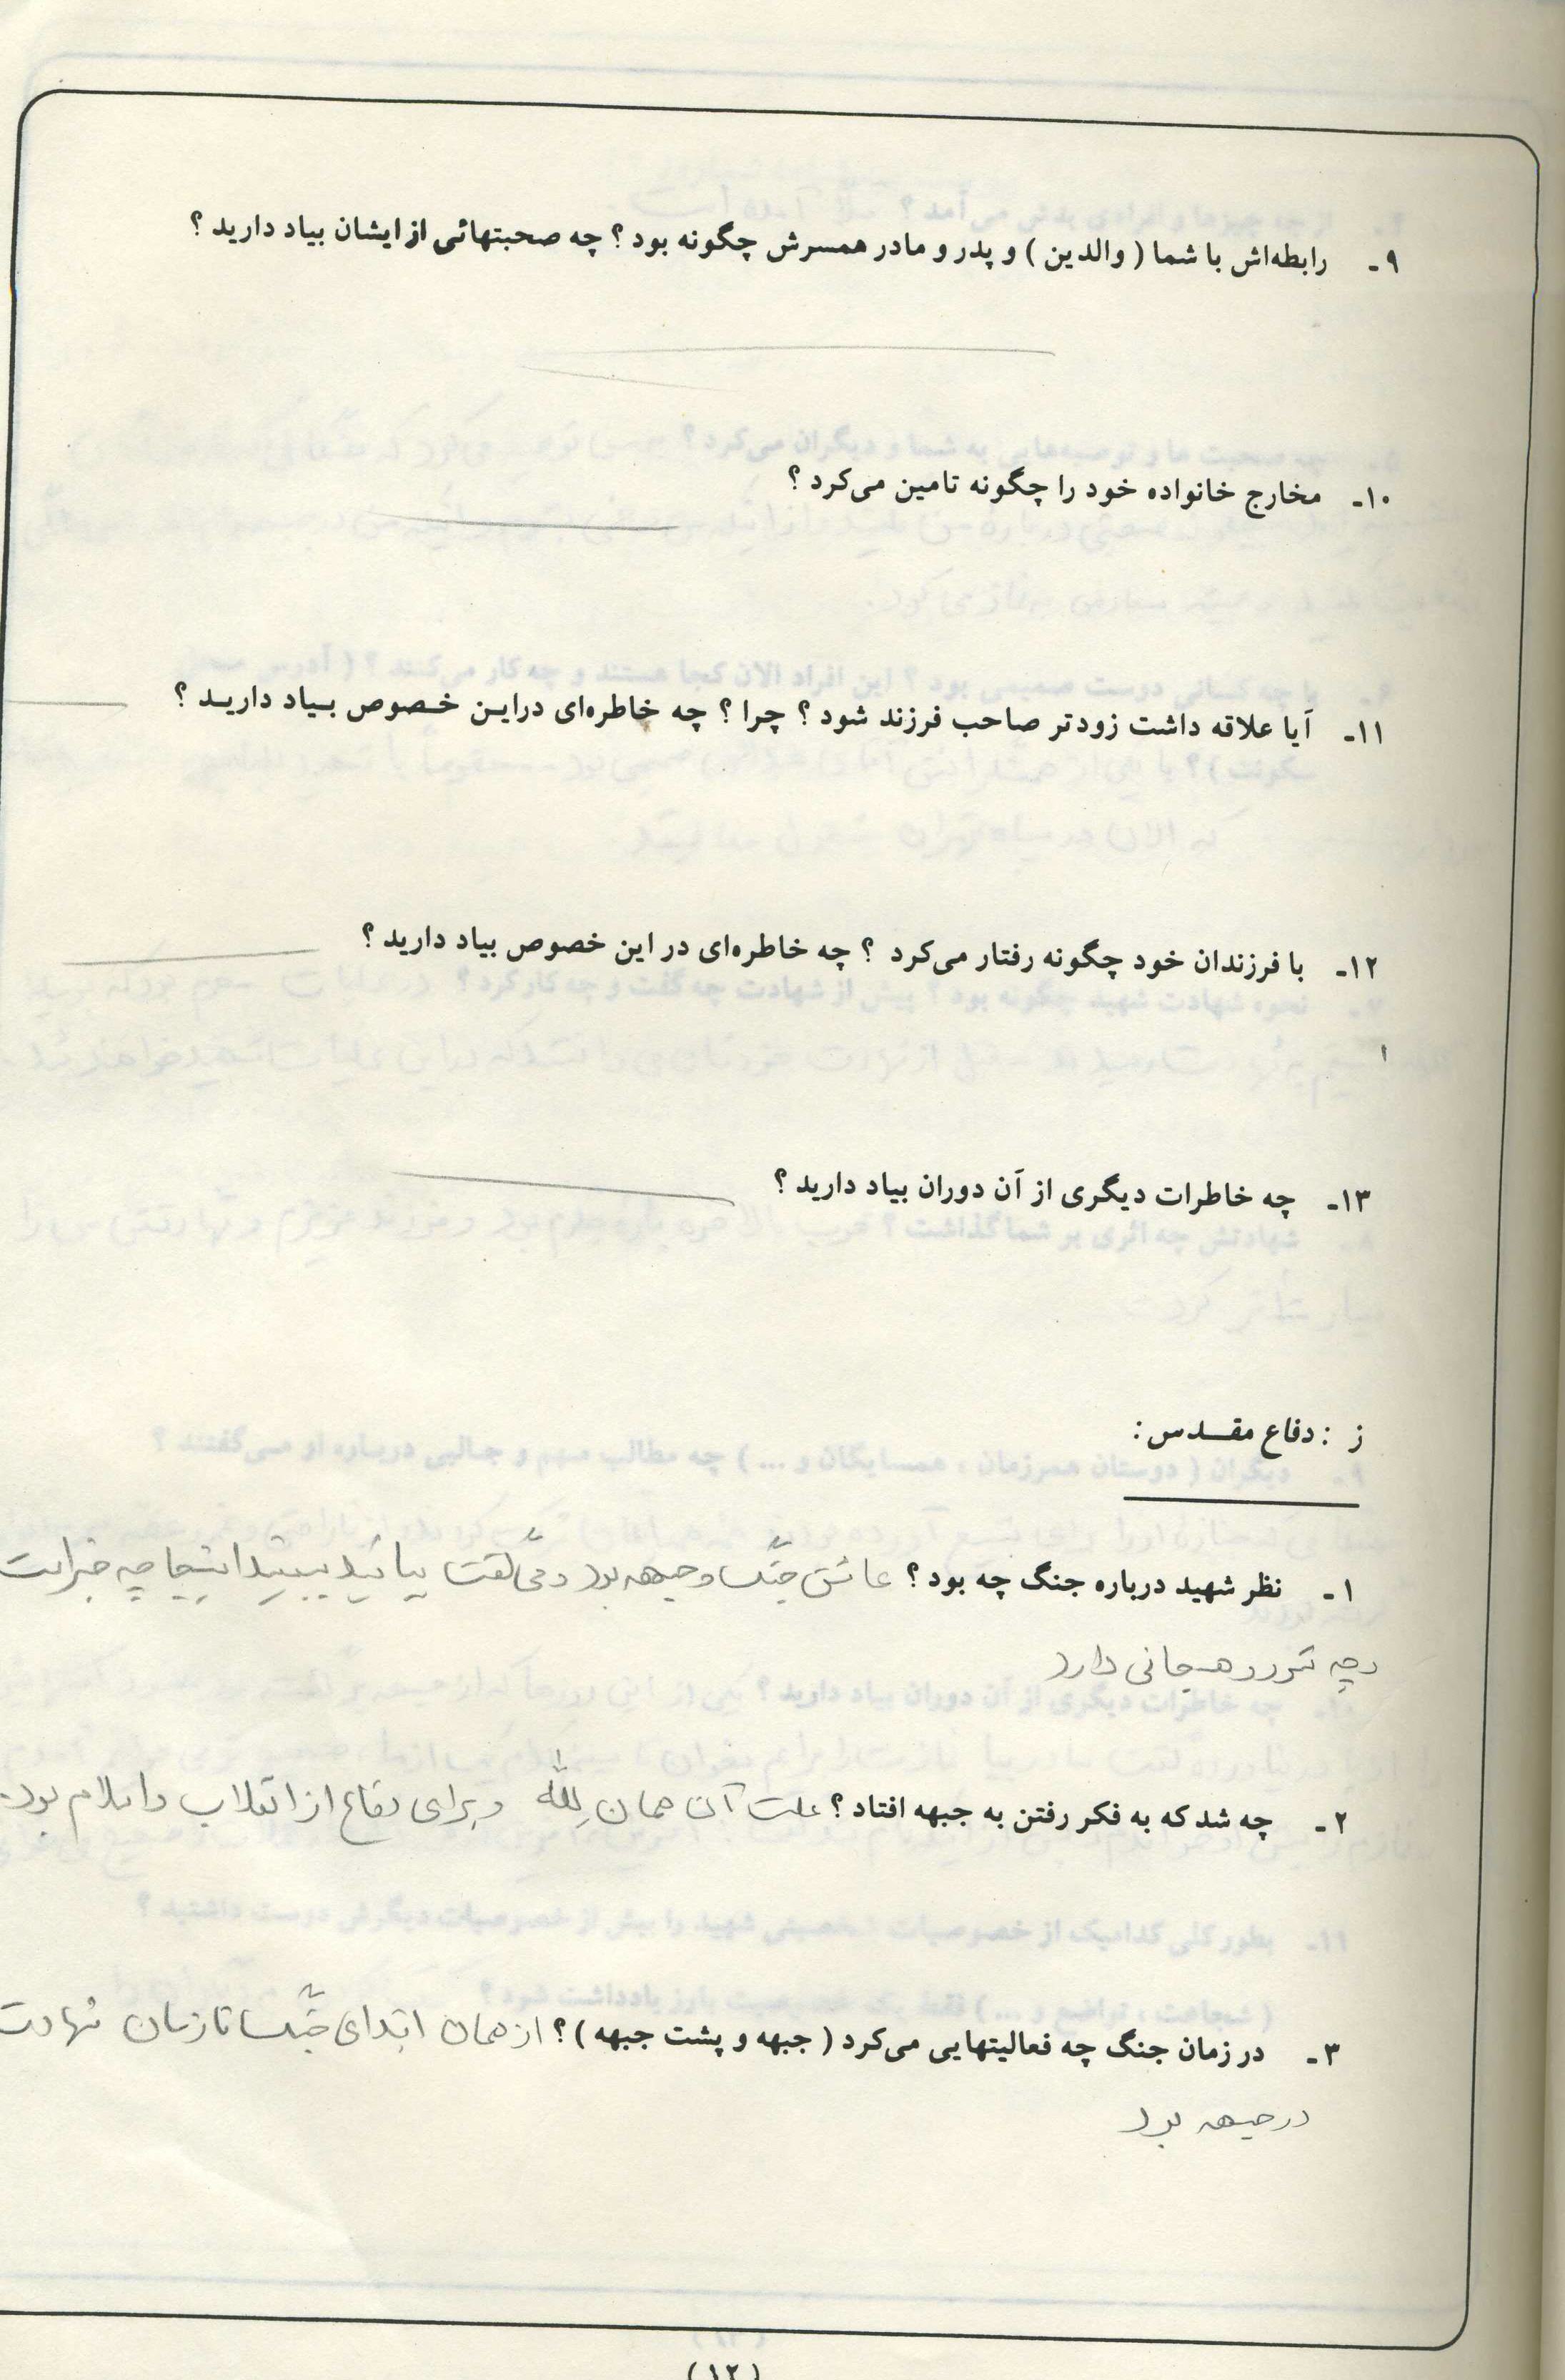 ۹ـ رابطه‌اش با شما ( والدین ) و پدر و مادر همسرش چگونه بود ؟ چه صحبتهائی از ایشان بیاد دارید ؟
۱۰ـ مخارج خانواده خود را چگونه تامین می‌کرد ؟
۱۱ـ آیا علاقه داشت زودتر صاحب فرزند شود ؟ چرا ؟ چه خاطره‌ای دراین خصوص بیاد دارید ؟
۱۲ـ با فرزندان خود چگونه رفتار می‌کرد ؟ چه خاطره‌ای در این خصوص بیاد دارید ؟
۱۳ـ چه خاطرات دیگری از آن دوران بیاد دارید ؟
ز : دفاع مقدس :
۱ـ نظر شهید درباره جنگ چه بود ؟ عاشق جنگ و جبهه بود و می‌گفت بیائید ببینید اینجا چه خبر است
و چه شور و هیجانی دارد
۲ـ چه شد که به فکر رفتن به جبهه افتاد ؟ علت آن همان لله و برای دفاع از انقلاب و اسلام بود.
۳ـ در زمان جنگ چه فعالیتهایی می‌کرد ( جبهه و پشت جبهه ) ؟ از همان ابتدای جنگ تا زمان شهادت
در جبهه بود
(۱۲)